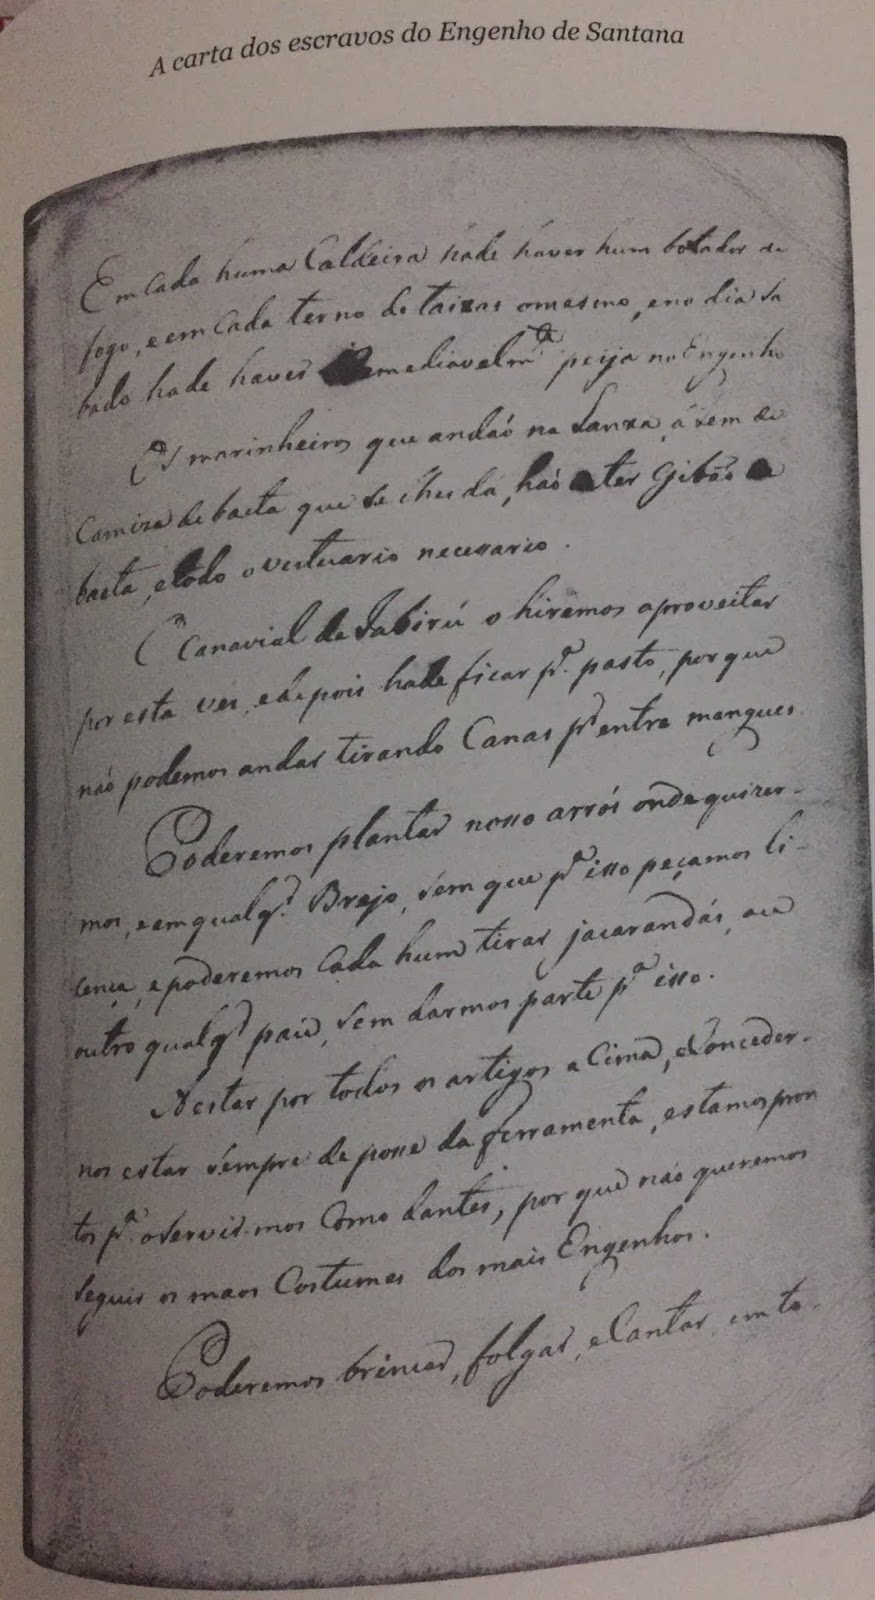 A carta dos escravos do Engenho de Santana
Em Cada huma Caldeira hade haver hum botador de
fogo, e em Cada terno de taixas o mesmo, e no dia Sa
bado hade haver Remediavelm.te peija no Engenho
Os marinheiros que andaõ na Lanxa, álem de
Camiza de baeta que se lhes dá, haõ de ter Gibaõ de
baeta, e todo o vestuario necessario.
O Canavial de Jabirú o hiremos aproveitar
por esta vez, e depois hade ficar p.a pasto, por que
naõ podemos andar tirando Canas p.r entre mangues.
Poderemos plantar nosso arrós onde quizer-
mos, e em qualq.r Brejo, sem que p.a isso peçamos li-
cença, e poderemos Cada hum tirar jacarandás, ou
outro qualq.r páu, sem darmos parte p.a isso.
A estar por todos os artigos a Cima, e Conceder-
nos estar sempre de posse da ferramenta, estamos pron
tos p.a o servir-mos Como dantes, por que naõ queremos
seguir os maos Costumes dos mais Engenhos.
Poderemos brincar, folgar, e Cantar em to-